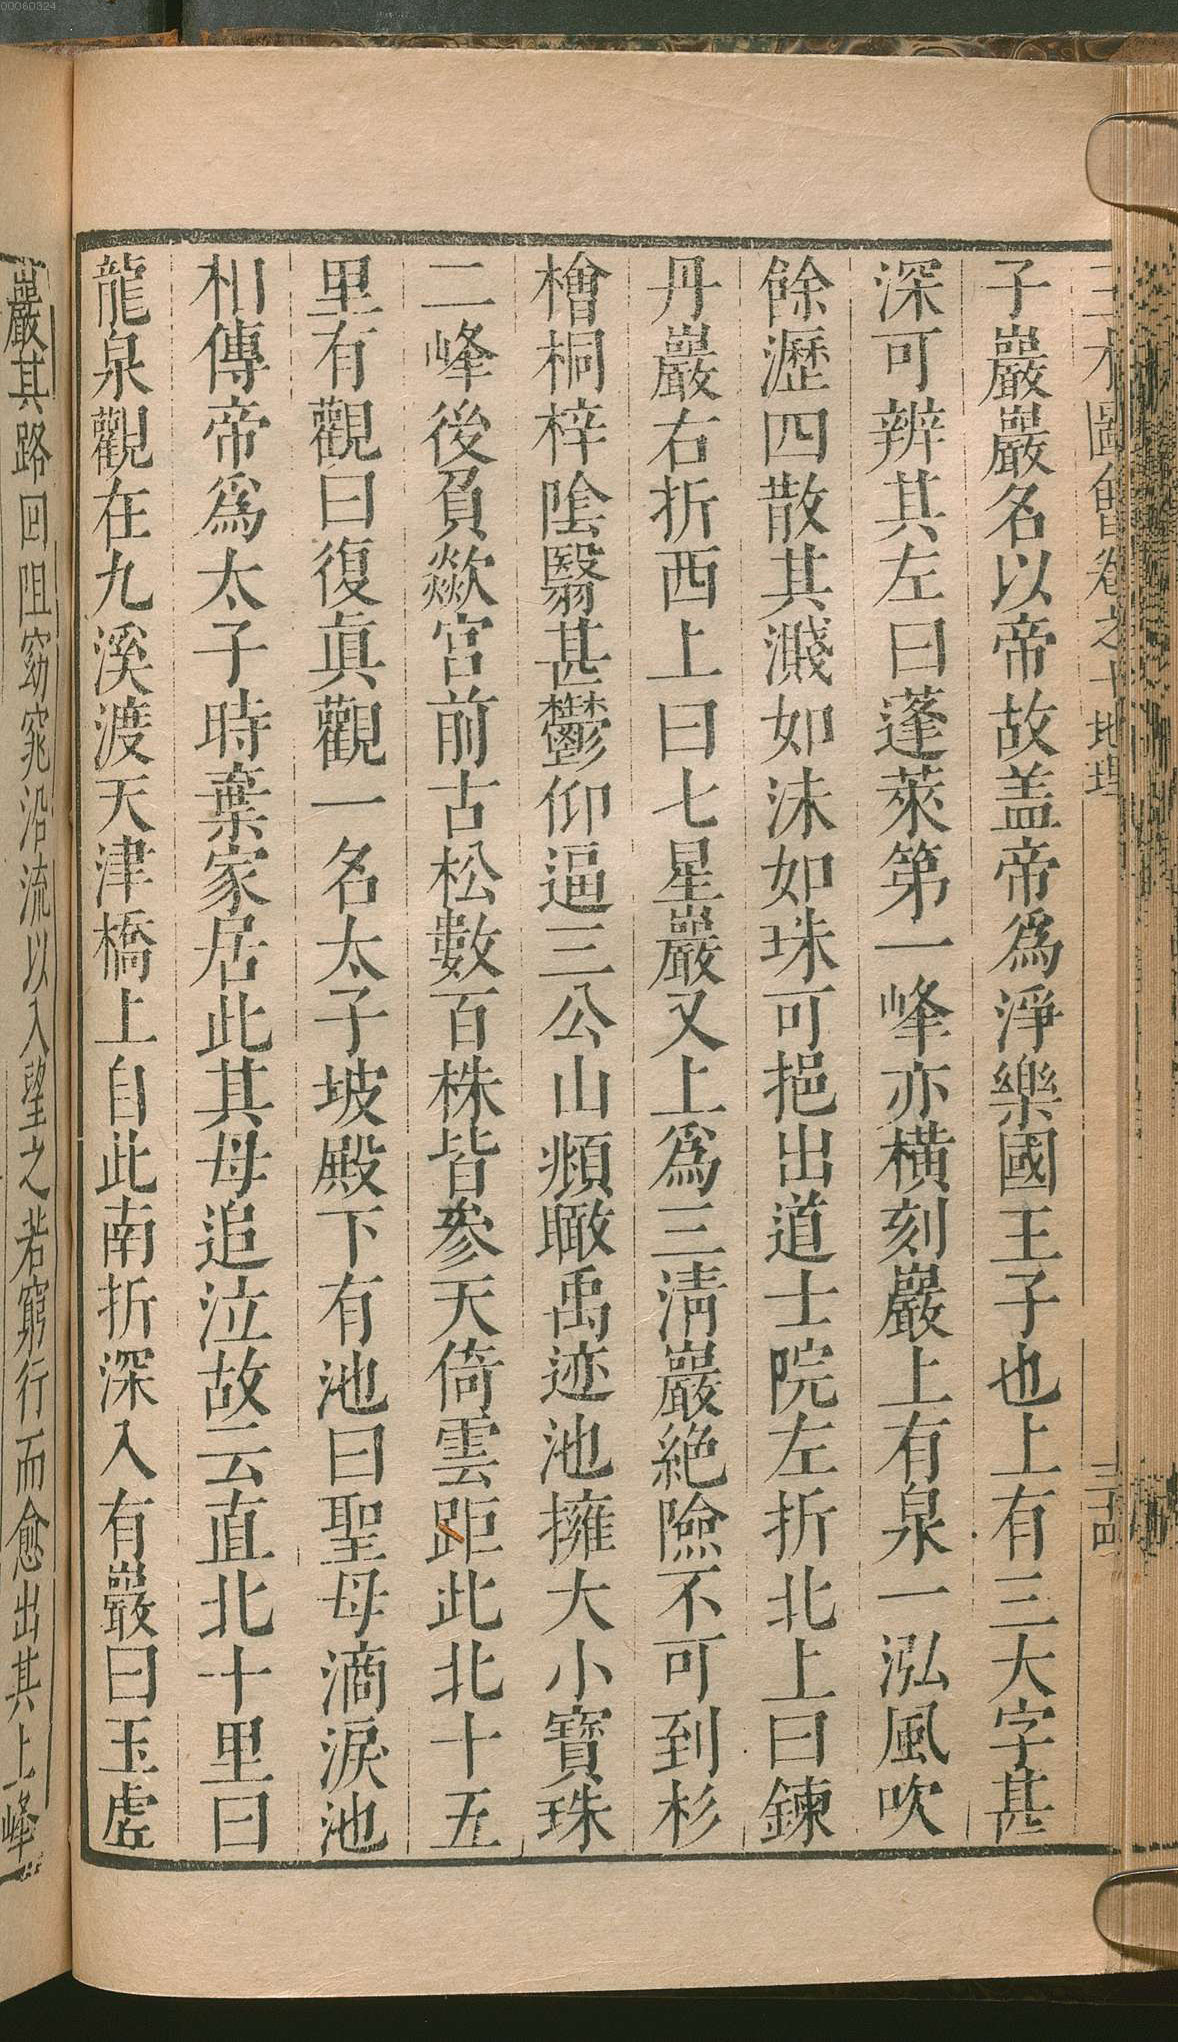 00060324
三才圖會卷之十地理 三十四
子巖巖名以帝故盖帝爲淨樂國王子也上有三大字甚
深可辨其左曰蓬萊第一峰亦橫刻巖上有泉一泓風吹
餘瀝四散其濺如沫如珠可挹出道士院左折北上曰鍊
丹巖右折西上曰七星巖又上爲三淸巖絶險不可到杉
檜桐梓陰翳甚鬱仰逼三公山頻瞰禹迹池擁大小寶珠
二峰後負歘宮前古松數百株皆叅天倚雲距此北十五
里有觀曰復眞觀一名太子坡殿下有池曰聖母滴淚池
相傳帝爲太子時棄家居此其母追泣故云直北十里曰
龍泉觀在九溪渡天津橋上自此南折深入有巖曰玉虛
巖其路回阻窈窕沿流以入望之若窮行而愈出其上峰